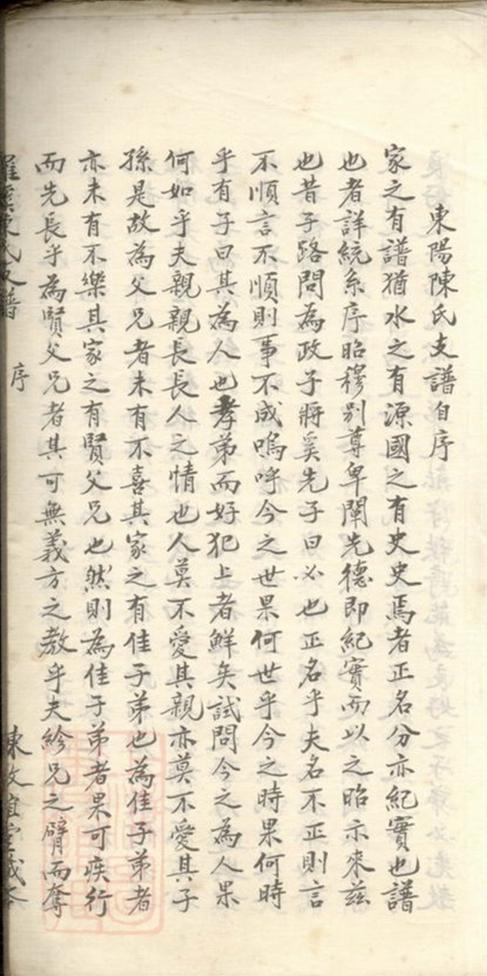 東陽陳氏支譜自序
家之有譜猶水之有源國之有史史焉者正名分亦紀實也譜
也者詳統系序昭穆别尊卑闡先德即紀實而以之昭示來茲
也昔子路問為政子將奚先子曰必也正名乎夫名不正則言
不順言不順則事不成嗚呼今之世果何世乎今之時果何時
乎有子曰其為人也孝弟而好犯上者鮮矣試問今之為人果
何如乎夫親親長長人之情也人莫不愛其親亦莫不愛其子
孫是故為父兄者未有不喜其家之有佳子弟也為佳子弟者
亦未有不樂其家之有賢父兄也然則為佳子弟者果可疾行
而先長乎為賢父兄者其可無義方之教乎夫紾兄之臂而奪
氏支譜 序